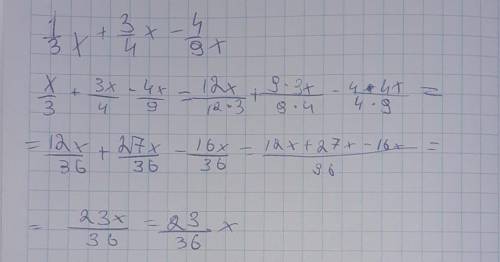 1/3 x + 3/4 x - 4/9 x
x/3 + 3x/4 - 4x/9 = 12x/12·3 + 9·3x/9·4 - 4·4x/4·9 =
= 12x/36 + 27x/36 - 16x/36 = 12x+27x-16x/36 =
= 23x/36 = 23/36 x